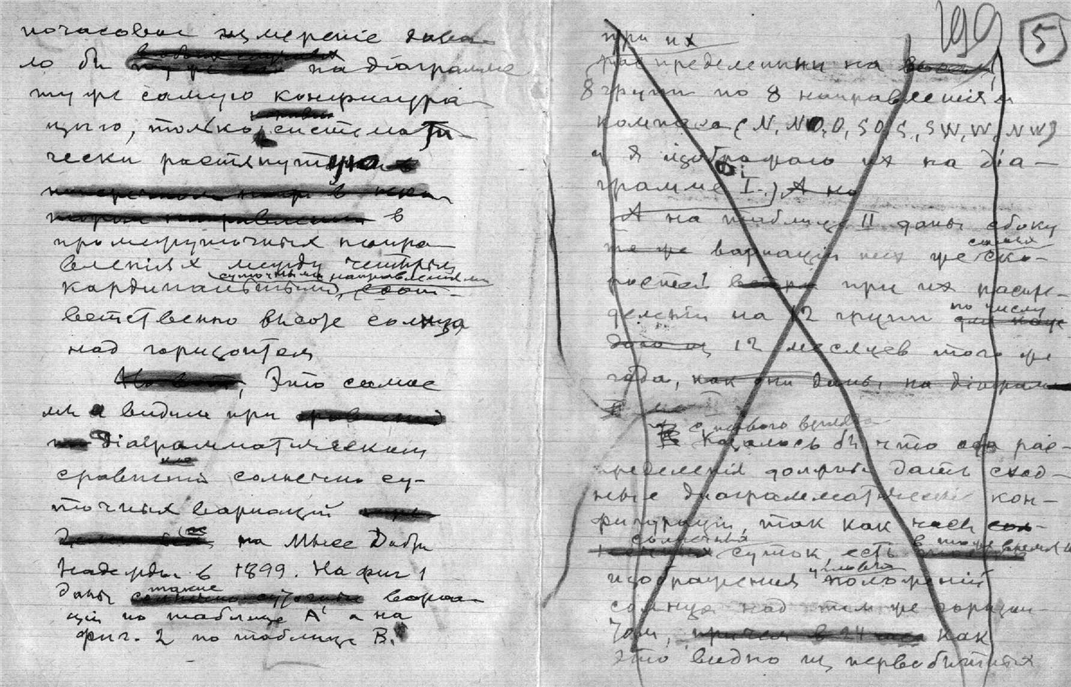 почасовое измерение дава
ло бы на диаграмме
ту же самую конфигура
цию, только системати
чески растянутую
в
промежуточных напра
влениях между четырьмя
суточными направлениями
кардинальными, соот-
ветственно высоте солнца
над горизонтом
Это самое
мы видим при
діаграмматическом
сравнении солнечно су-
точных вариацій
на Мысе Добр
Надежды в 1899. На фиг 1
такие
даны вариа
ціи по таблице А' а на
фиг. 2 по таблице В.
199 5
при их
распределении на
8 групп по 8 направленіям
компаса (N, NO, O, SO, S, SW, W, NW)
и я изображаю их на діа-
грамме I.) А на
А на таблице II даны сбоку
те же вариаціи тех же ско-
ростей при их разде-
по числу
деленіи на 12 групп
12 месяцев того же
года, как они даны на діаграм
с первого взгляда
Казалось бы что оба рас-
пределенія должны дать сход-
ные диаграмматическія кон-
фигураціи, так как часы
солнечных в то же время и
суток, есть
изображения положеній
солнца над тем же горизон-
том, как
это видно из первобытных